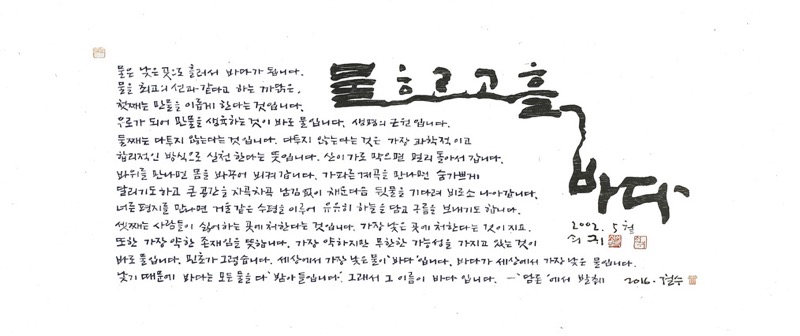 물 흐르고 흘
바다
2002. 5월
물은 낮은 곳으로 흘러서 바다가 됩니다.
물을 최고의 선과 같다고 하는 까닭은,
첫째는 만물을 이롭게 한다는 것입니다.
우로가 되어 만물을 생육하는 것이 바로 물입니다. 생명의 근원입니다.
둘째는 다투지 않는다는 것입니다. 다투지 않는다는 것은 가장 과학적이고
합리적인 방식으로 실천한다는 뜻입니다. 산이 가로 막으면 멀리 돌아서 갑니다.
바위를 만나면 몸을 바꾸어 비켜갑니다. 가파른 계곡을 만나면 숨가쁘게
달리기도 하고 큰 공간을 차곡차곡 남김없이 채운 다음 뒷물을 기다려 비로소 나아갑니다.
너른 평지를 만나면 거울같은 수평을 이루어 유유히 하늘을 담고 구름을 보내기도 합니다.
셋째는 사람들이 싫어하는 곳에 처한다는 것입니다. 가장 낮은 곳에 처한다는 것이지요.
또한 가장 약한 존재임을 뜻합니다. 가장 약하지만 무한한 가능성을 가지고 있는 것이
바로 물입니다. 민초가 그렇습니다. 세상에서 가장 낮은 물이 '바다'입니다. 바다가 세상에서 가장 낮은 물입니다.
낮기 때문에 바다는 모든 물을 다 '받아들입니다'. 그래서 그 이름이 바다 입니다. ㅡ'담론'에서 발췌 2016. 철수